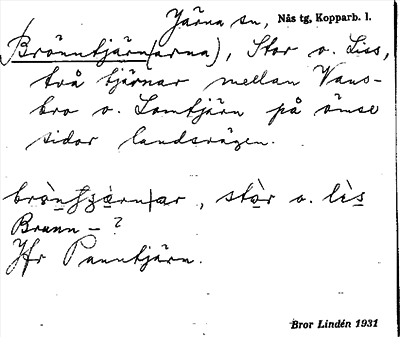 Järna sn, Nås tg, Kopparb. l.
Brönntjärn(arna), Stor o. Liss,
två tjärnar mellan Vans-
bro o. Lomtjärn på ömse
sidor landsvägen.
stòr o. lès
Brunn - ?
Jfr Panntjärn.
Bror Lindén 1931